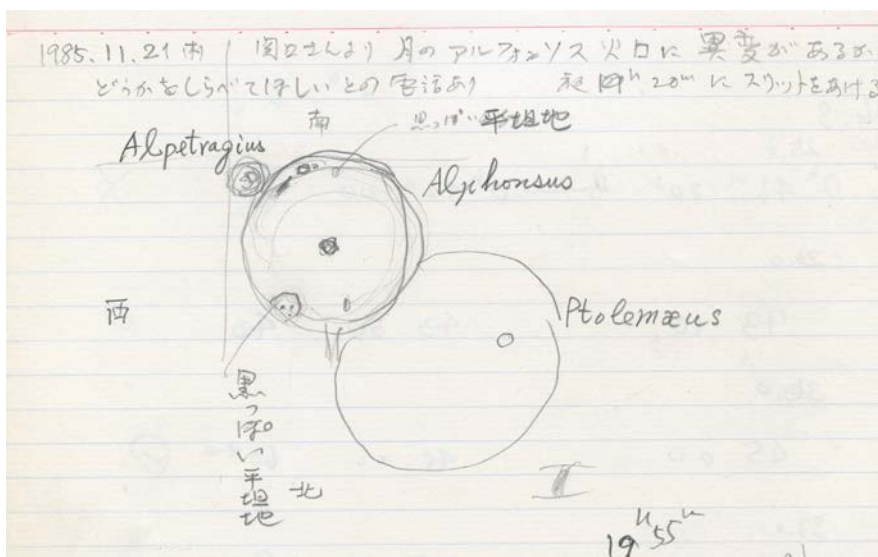 1985.11.21 (木) 関口さんより 月のアルフォンソス火口に異変があるか
どうかをしらべてほしいとの電話あり 20ᵐ にスリットをあける
南
黒っぽい平坦地
Alpetragius
Alphonsus
西
Ptolemæus
黒っぽい平坦地
北
19ʰ55ᵐ